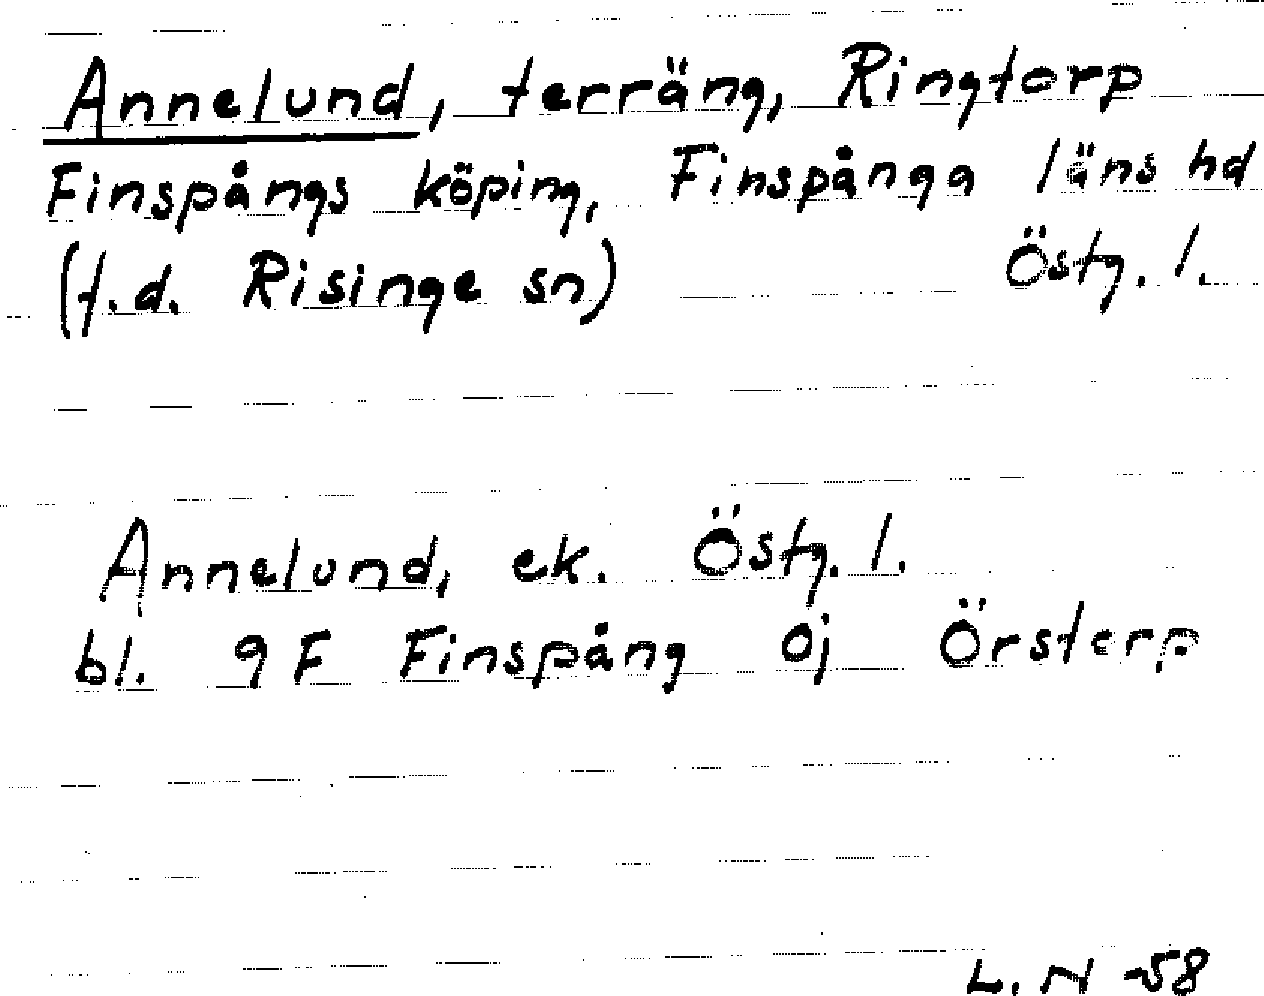 Annelund, terräng, Ringtorp
Finspångs köping, Finspånga läns hd
(f.d. Risinge sn) Östg. l.
Annelund, ek. Östg. l.
bl. 9F Finspång 0j Örstorp
L. N -58